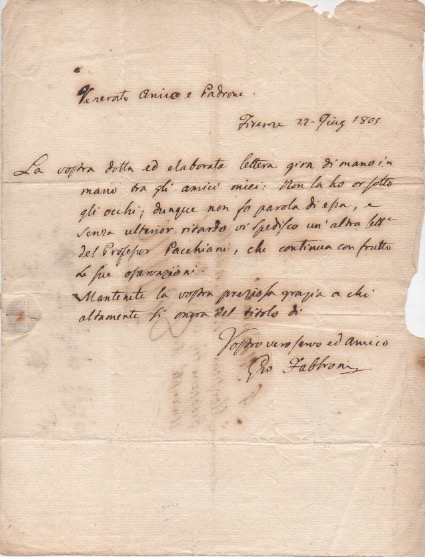 Venerato Amico e Padrone.
Firenze 22. Giug 1805
La vostra dotta ed elaborata lettera gira di mano in
mano tra gli amici miei: Non la ho or sotto
gli occhi; dunque non fo parola di essa, e
senza ulterior ritardo vi spedisco un' altra lett.ª
del Professor Pacchiani, che continua con frutto
le sue osservazioni.
Mantenete la vostra preziosa grazia a chi
altamente si onora del titolo di
Vostro vero servo ed Amico
Gio Fabbroni